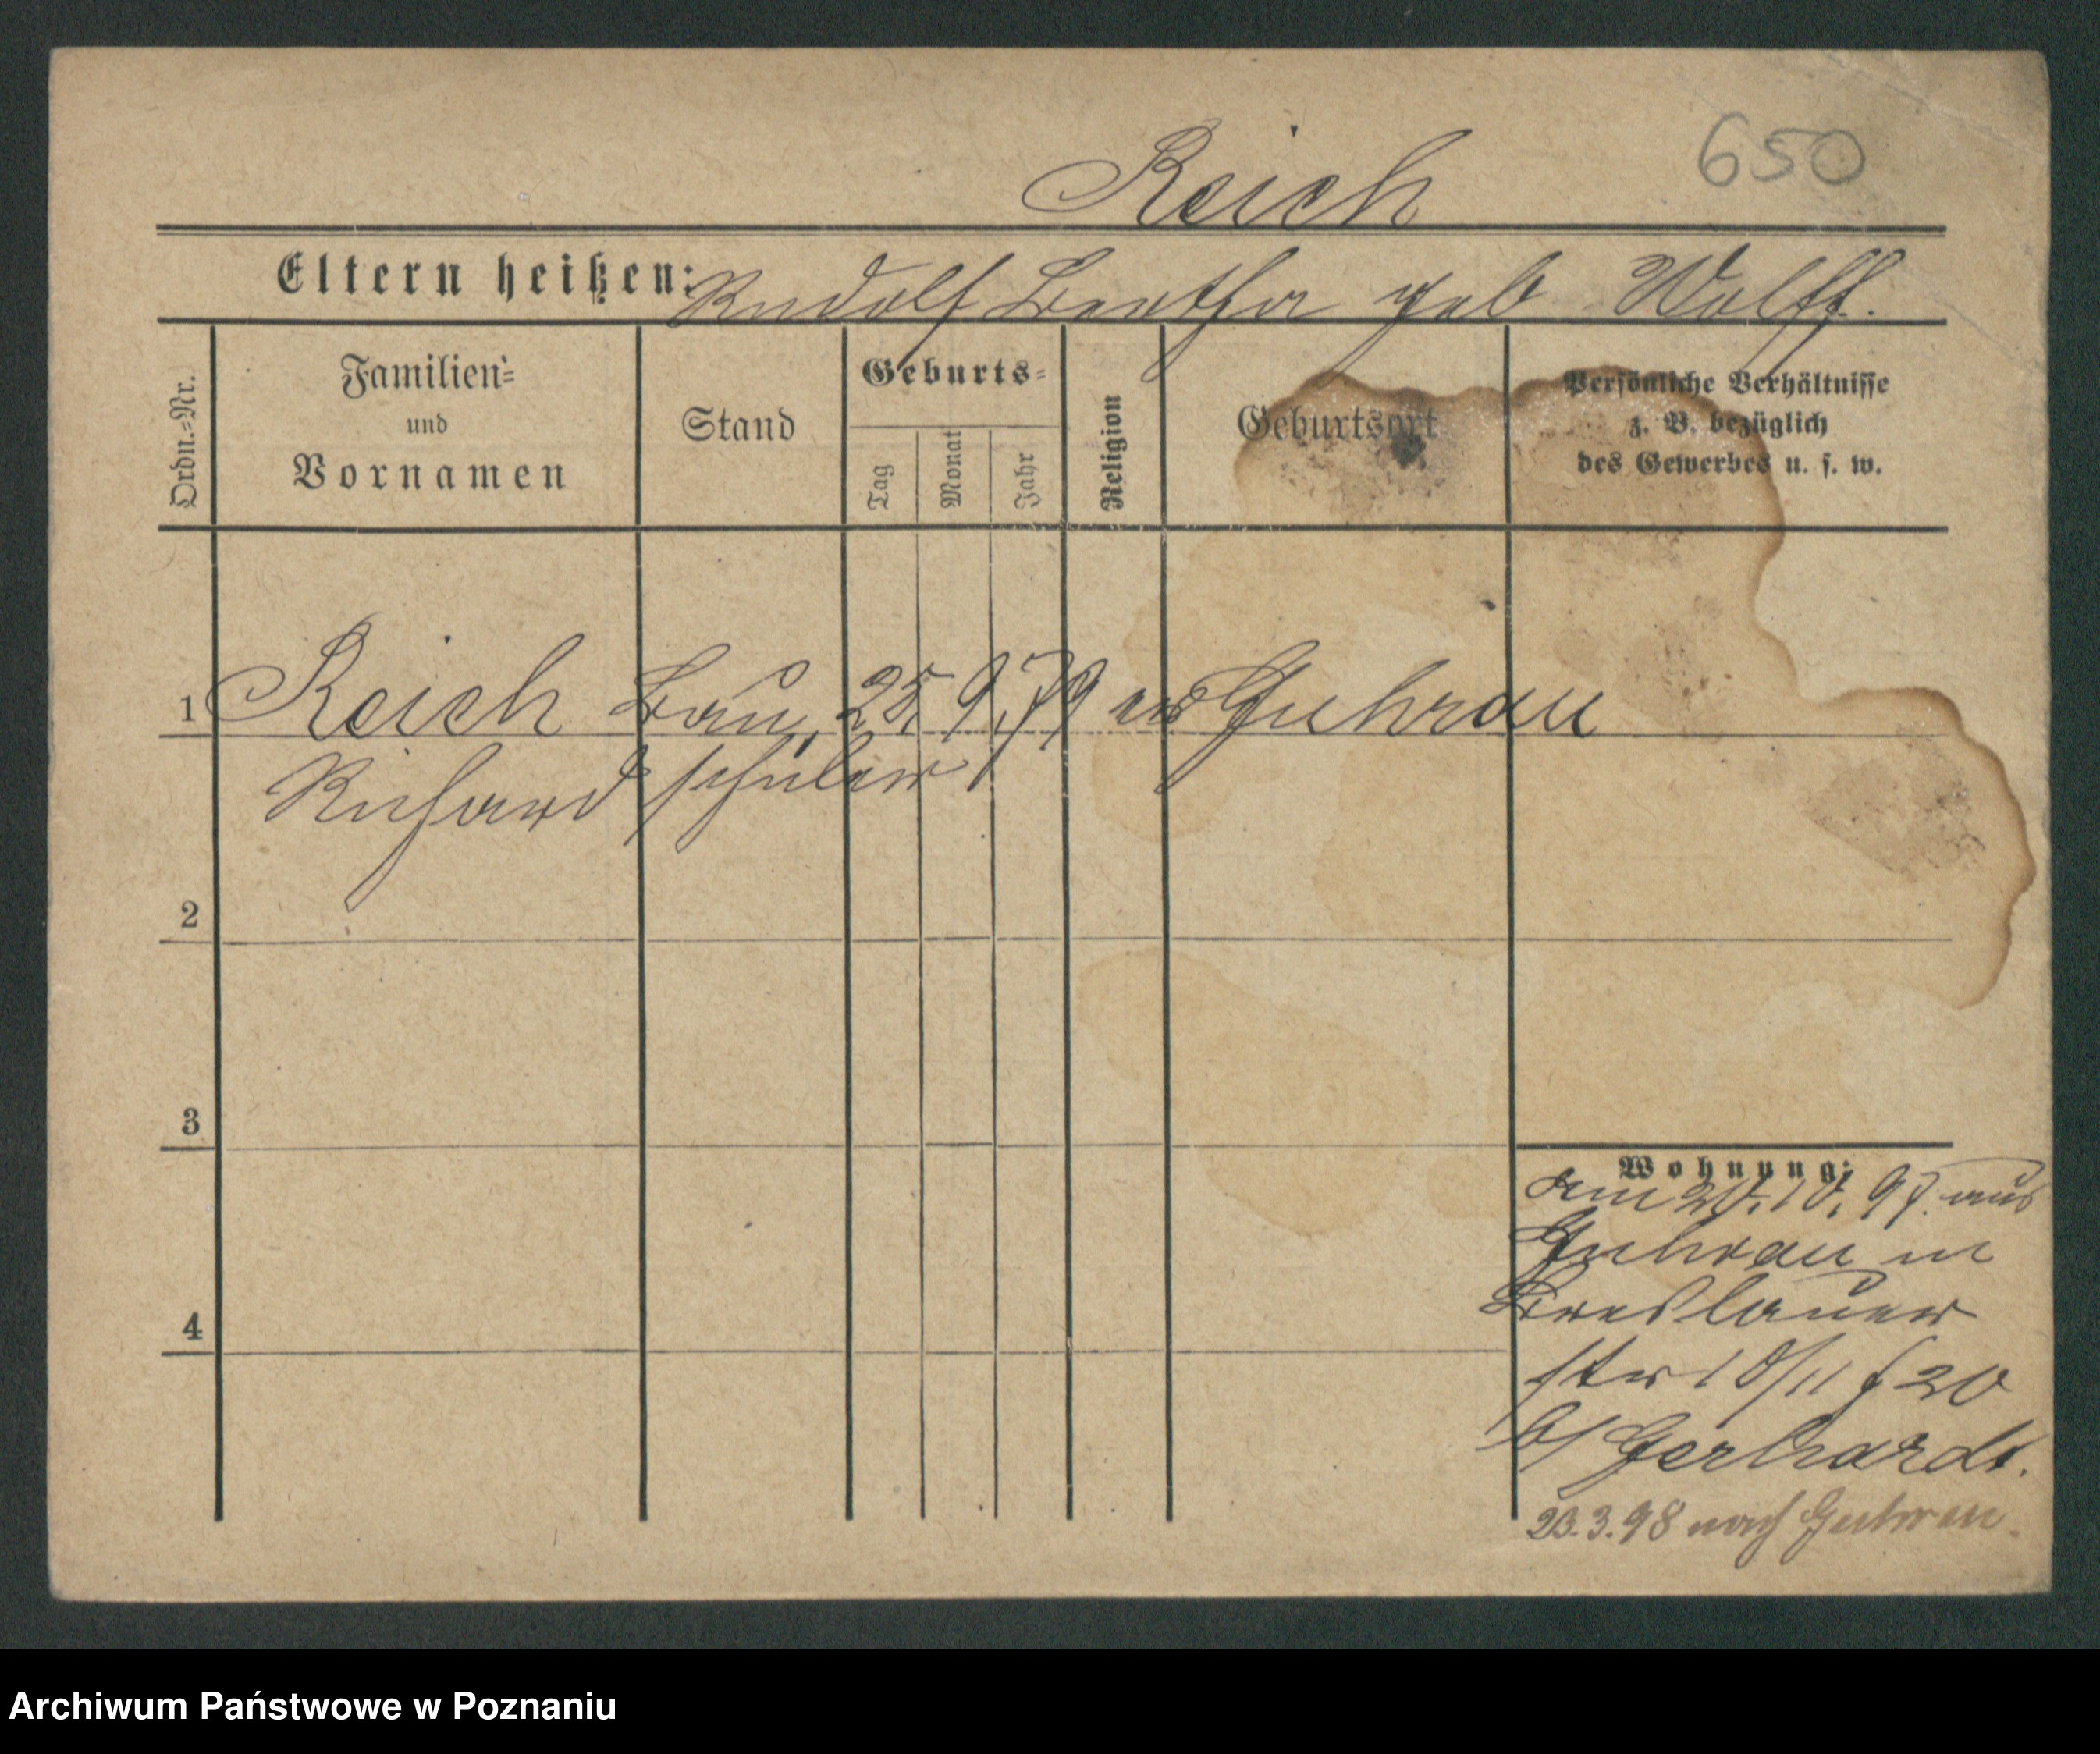 650
Reich
Eltern heißen: Rudolf Bertha geb Wolff.
Ordn.-Nr.
Familien-
und
Vornamen
Stand
Geburts-
Tag
Monat
Jahr
Religion
Geburtsort
Persönliche Verhältnisse
z. B. bezüglich
des Gewerbes u. s. w.
1 Reich Bau 25 9 79 Guhrau
Richard schüler
2
3
4
Wohnung:
am 20.10.97. aus
Guhrau in
Breslauer
str 10/11
b/ Gerhardt.
23.3.98 nach Guhrau.
Archiwum Państwowe w Poznaniu